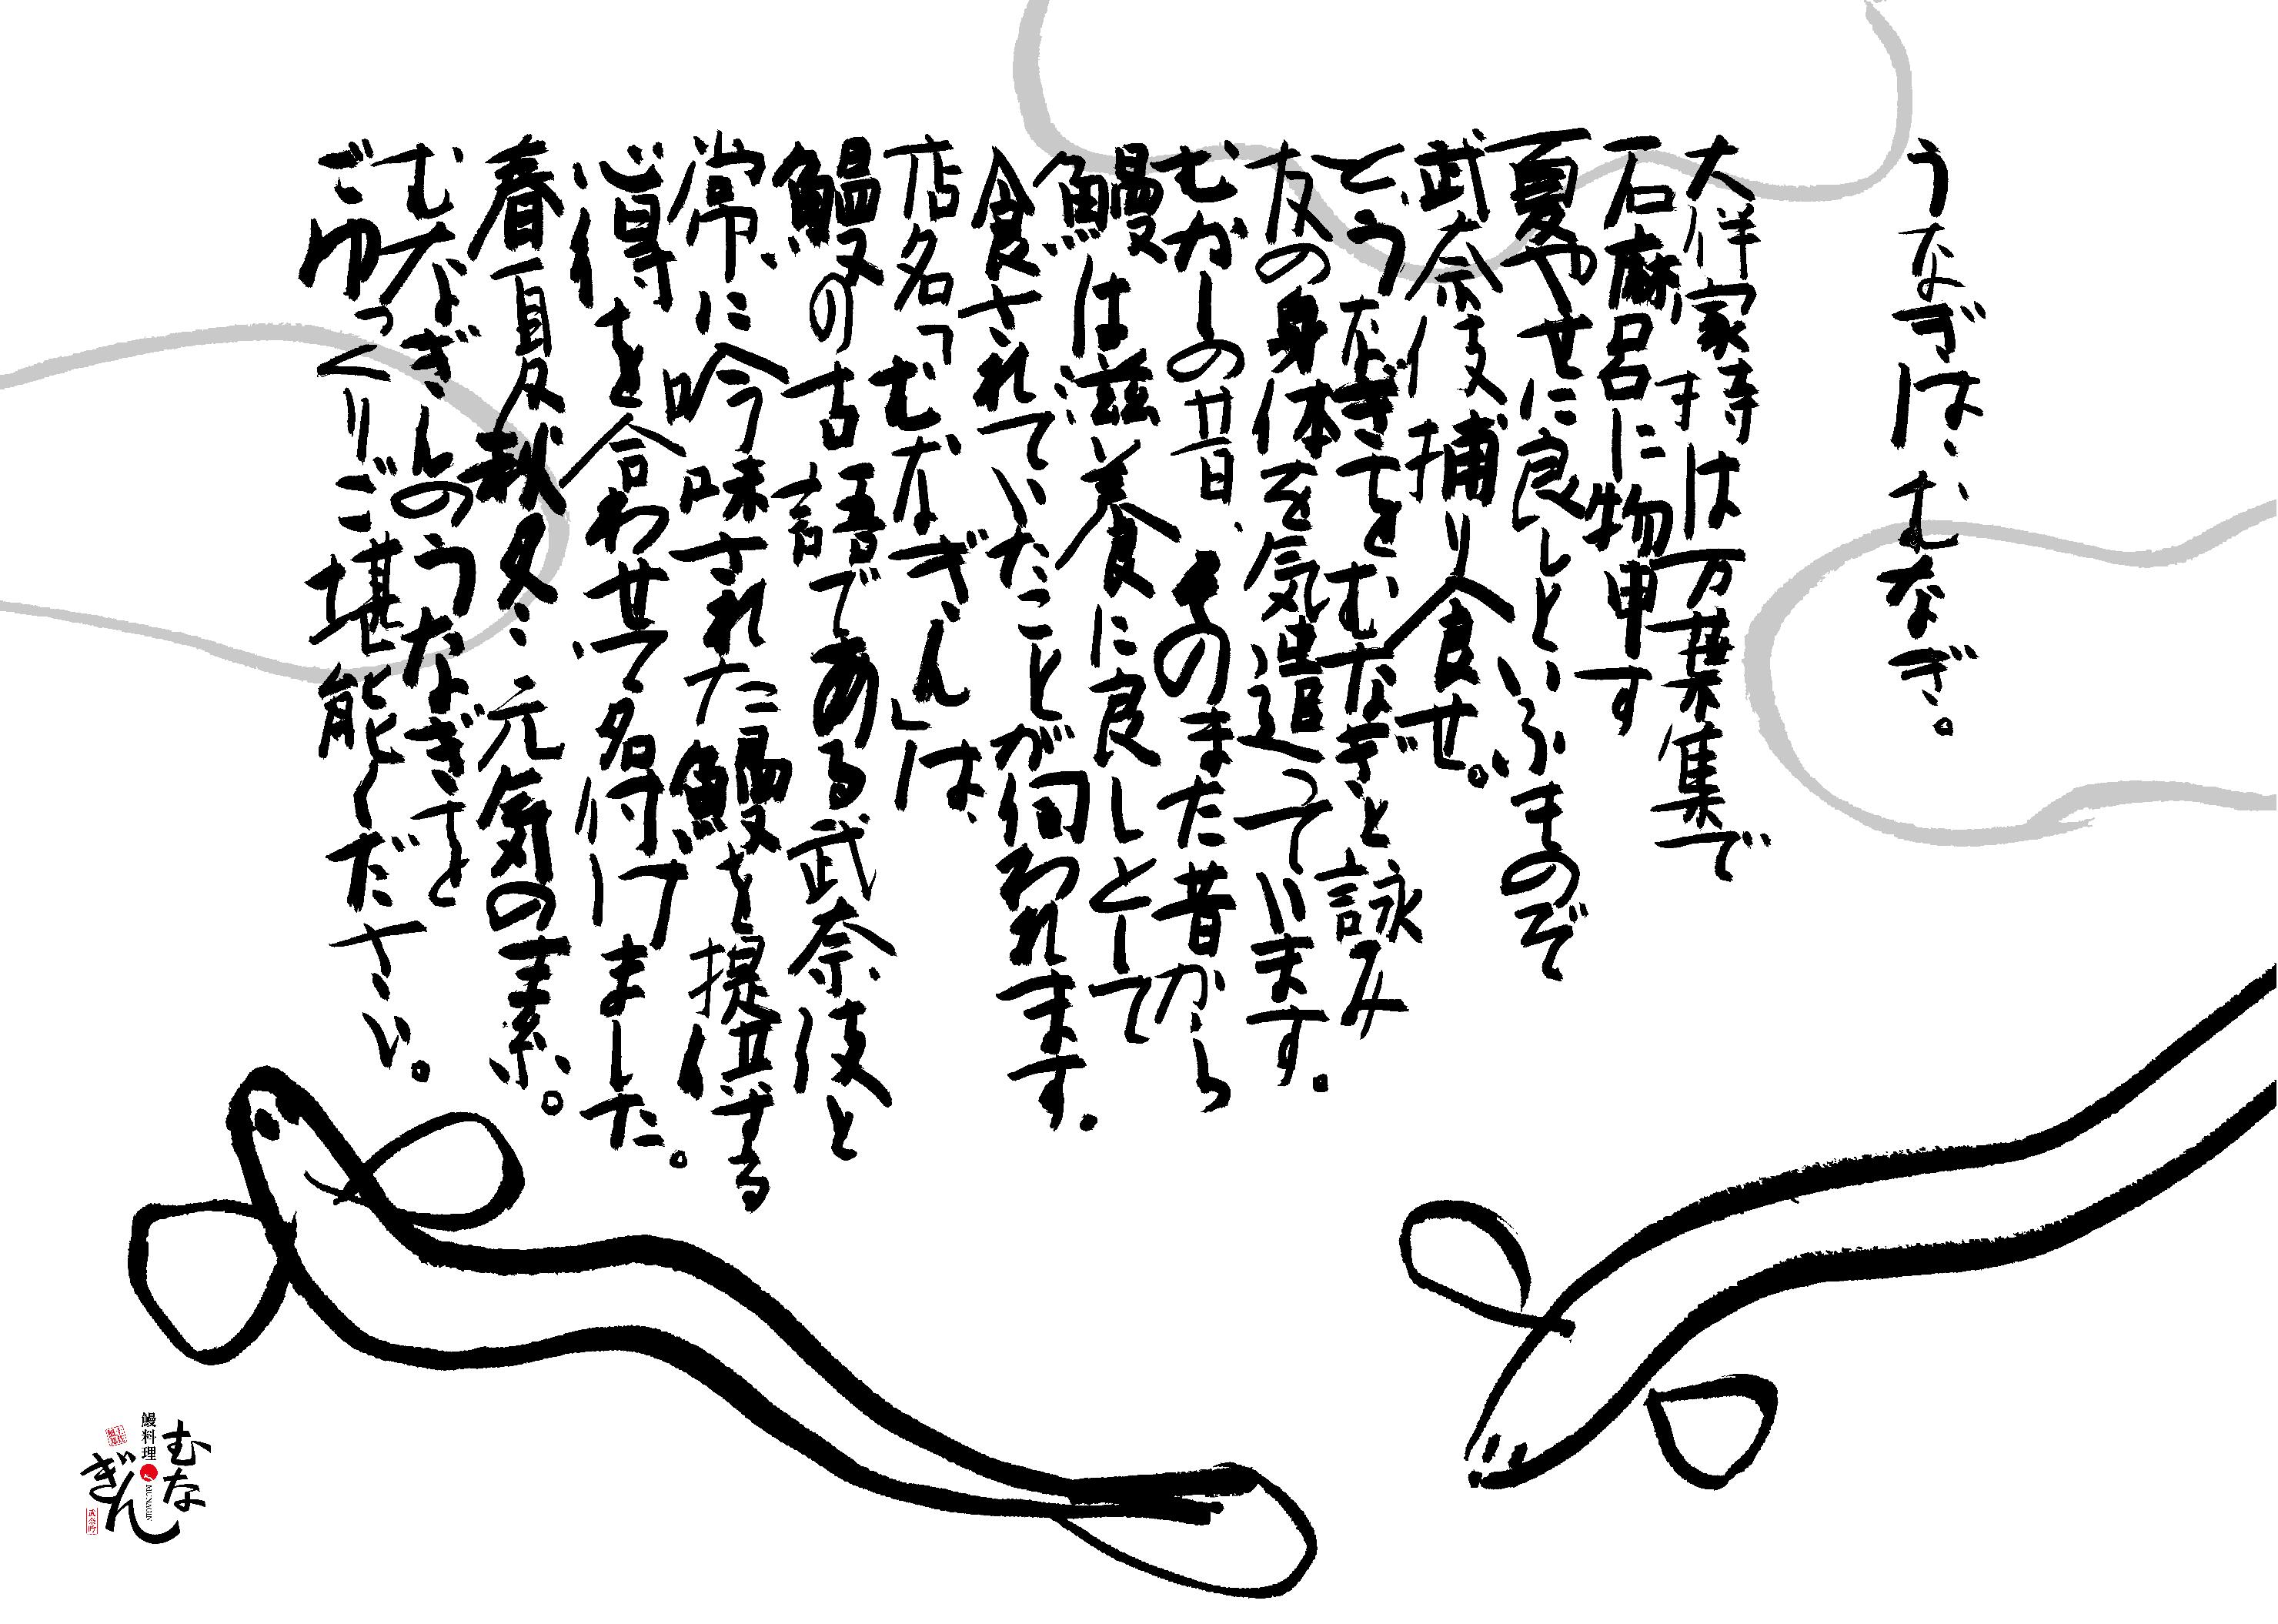 うなぎは、むなぎ。
大伴家持は万葉集で
石麻呂に物申す
夏やせに良しといふものぞ
武奈伎捕り食せ。
と、うなぎをむなぎと詠み
友の身体を気遣っています。
むかしの昔、そのまた昔から
鰻は滋養に良しとして
食されていたことが伺われます。
店名「むなぎん」は、
鰻の古語である武奈伎と
常に吟味された鰻を提供する
心得を合わせて名付けました。
春夏秋冬…元気の素。
むなぎんのうなぎを
ごゆっくりご堪能ください。
むな
ぎん
鰻料理
MUNAGIN
武奈吟